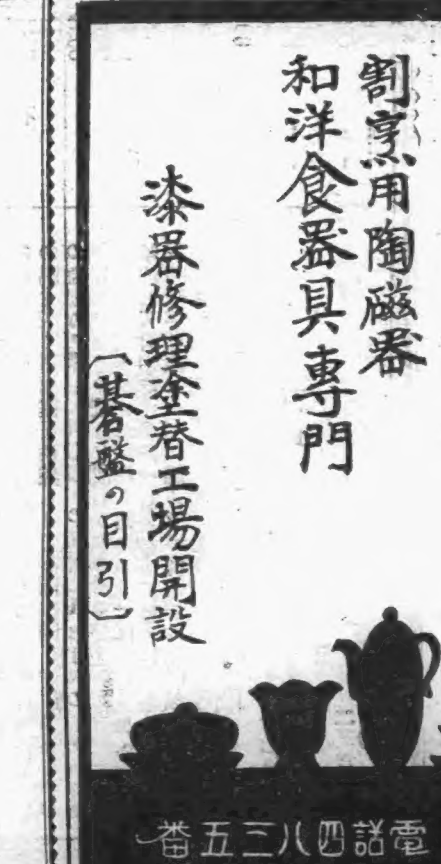 割烹用陶磁器
和洋食器具専門
漆器修理塗替工場開設
〔碁盤の目引〕
電話四八三五番